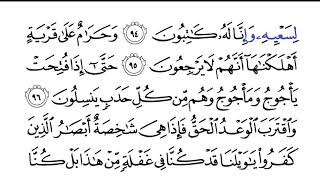 لِسَعْيِهِۦ وَإِنَّا لَهُۥ كَٰتِبُونَ ٩٤ وَحَرَٰمٌ عَلَىٰ قَرْيَةٍ
أَهْلَكْنَٰهَآ أَنَّهُمْ لَا يَرْجِعُونَ ٩٥ حَتَّىٰٓ إِذَا فُتِحَتْ
يَأْجُوجُ وَمَأْجُوجُ وَهُم مِّن كُلِّ حَدَبٍ يَنسِلُونَ ٩٦
وَٱقْتَرَبَ ٱلْوَعْدُ ٱلْحَقُّ فَإِذَا هِىَ شَٰخِصَةٌ أَبْصَٰرُ ٱلَّذِينَ
كَفَرُوا۟ يَٰوَيْلَنَا قَدْ كُنَّا فِى غَفْلَةٍ مِّنْ هَٰذَا بَلْ كُنَّا